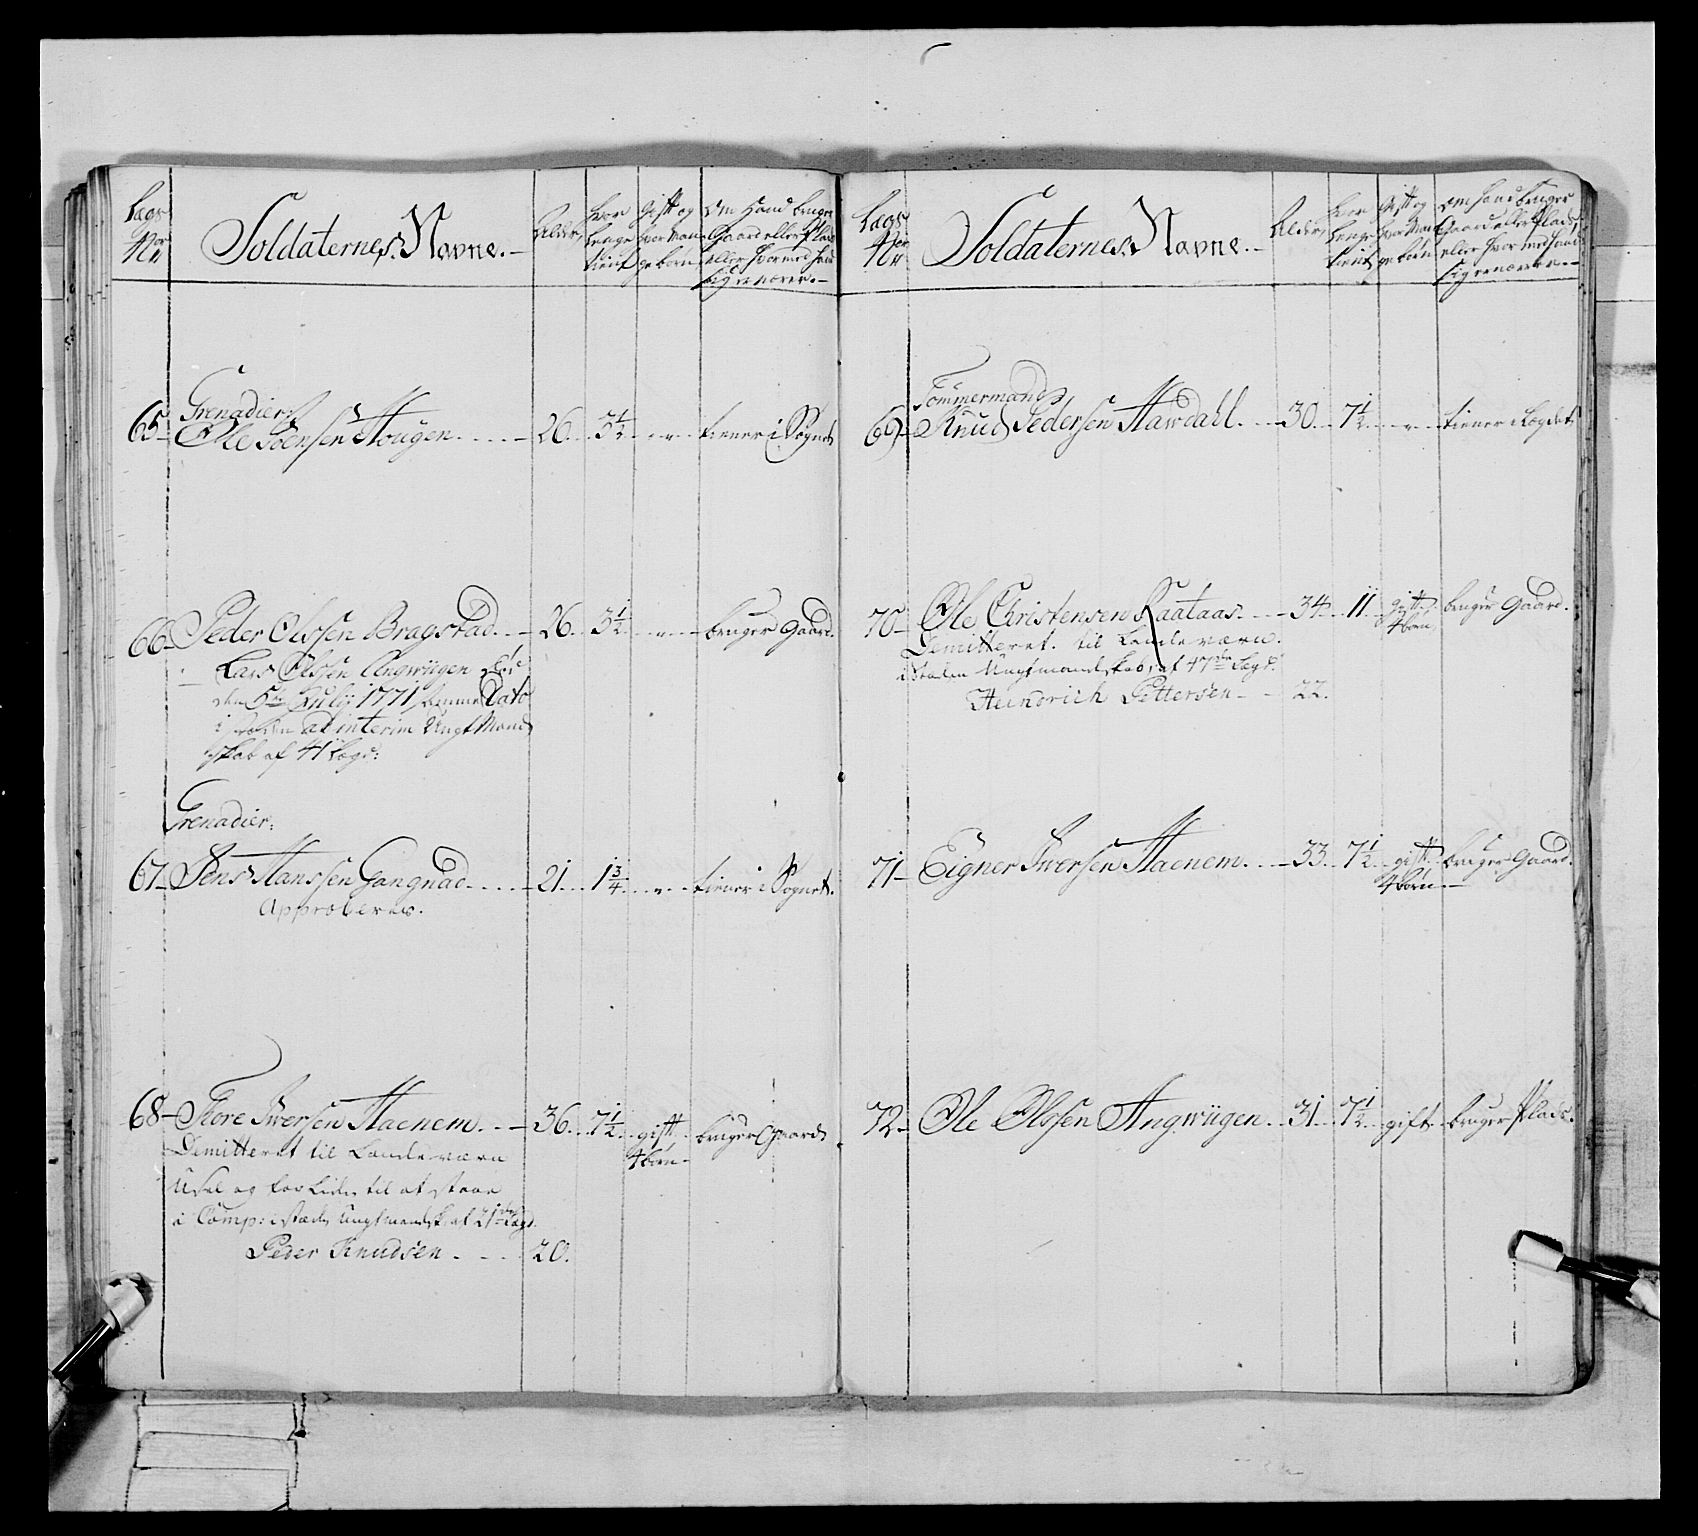 Lægs No
Soldaternes Navne.
Alder
hvor længe tient
Gift og hvor Mange børn
Om Hand bruger Gaard eller Plads eller hvormed hand sig ernærer.
Grenadier
65 Olle Joensen Hougen 26. 3 1/2 tiener i Sognet
66 Peder Olssen Bragstad 26. 3 1/2 bruger Gaard.
Lars Olssen Angwiigen
den 5te July 1771 Dato
ad interim Ungt Mand
skab af 41 Lægd:
Grenadier:
67 Jens Hanssen Gangnad 21. 1 3/4 tiener i Sognet.
Approberes.
68 Tore Iwersen Haenem 36. 7 1/2 gift, 4 børn bruger Gaard
Demitteret til Landeværn
Usel og for Liden til at staae
i Comp: i stæd Ungtmandsk: af 21de Lægd.
Peder Knudsen 20.
Lægs No
Soldaternes Navne.
Alder
hvor længe tient
Gift og hvor Mange børn
Om hand bruger Gaard eller Plads, eller hvormed hand sig ernærer.
Tömmermand
69 Knud Pedersen Hawdahl 30. 7 1/2 tiener i Lægdet
70 Ole Christensen Raataas 34. 11. gift 4 børn, bruger Gaard.
Demitteret til Landeværn.
i Stæden Ungtmandskab af 47de Lægd.
Heindrich Pettersen 22.
71 Eigner Iwersen Haenem. 33. 7 1/2 gift 4 børn bruger Gaard.
72 Ole Olssen Angwiigen 31. 7 1/2 gift bruger Plads.